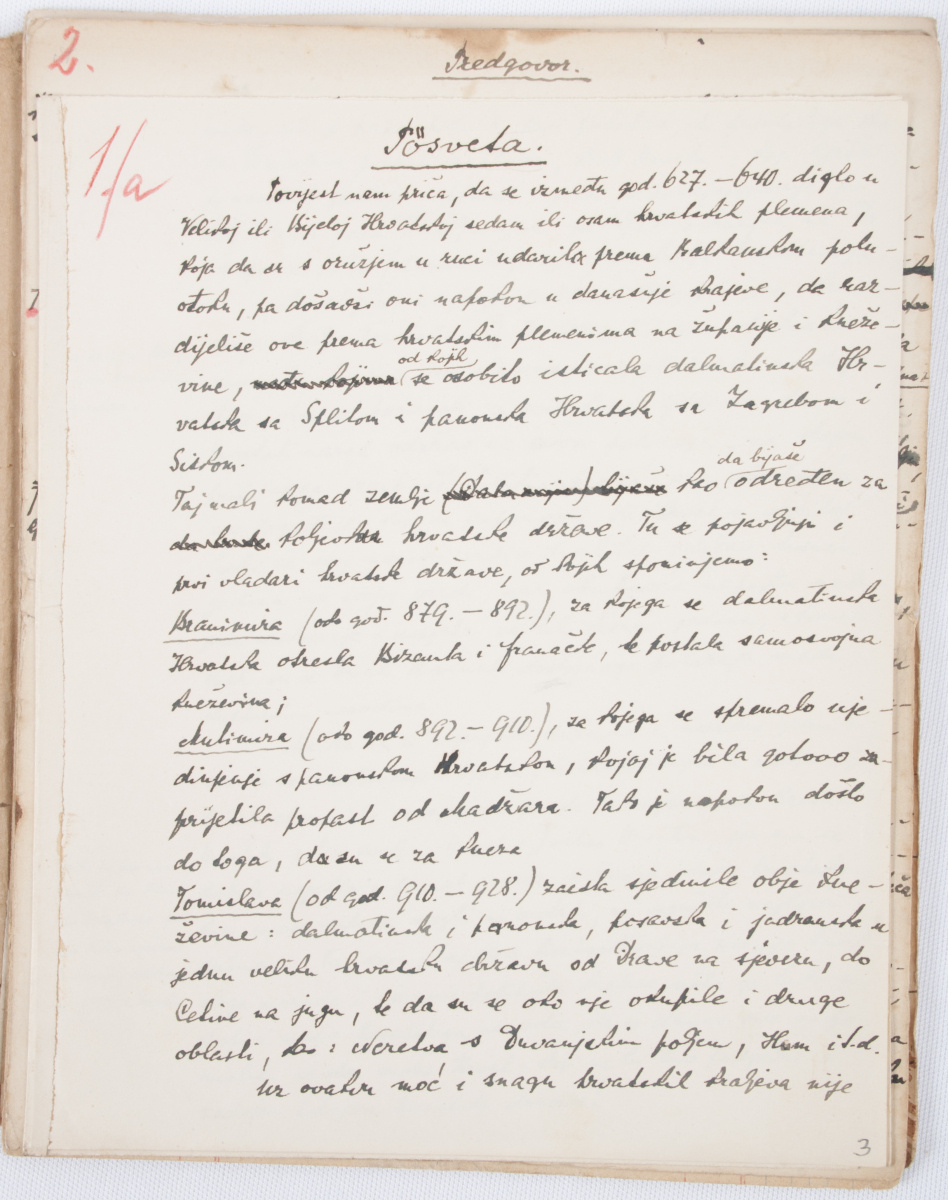 2.
Predgovor.
1/a
Pösveta.
Povijest nam priča, da se između god. 627. – 640. diglo u
Velikoj ili Bijeloj Hrvatskoj sedam ili osam hrvatskih plemena,
koja da su s oružjem u ruci udarila prema Balkanskom polu-
otoku, pa došavši oni napokon u današnje krajeve, da raz-
dijeliše ove prema hrvatskim plemenima na županije i kneže-
vine, među kojima od kojih se osobito isticala dalmatinska Hr-
vatska sa Splitom i panonska Hrvatska sa Zagrebom i
Siskom.
Taj mali komad zemlje (Dalmacija) bijaše kao da bijaše određen za
kolijevku hrvatske države. Tu se pojavljuju i
prvi vladari hrvatske države, od kojih spominjemo:
Branimira (oko god. 879. – 892.), za kojega se dalmatinska
Hrvatska otresla Bizanta i franačke, te postala samosvojna
kneževina;
Mutimira (oko god. 892. – 910.), za kojega se spremalo uje-
dinjenje s panonskom Hrvatskom, kojoj je bila gotovo za-
prijetila propast od Madžara. Tako je napokon došlo
do toga, da su se za kneza
Tomislava (od god. 910. – 928.) zaista sjedinile obje kne-
ževine: dalmatinska i panonska, posavska i jadranska u
jednu veliku hrvatsku državu od Drave na sjeveru, do
Cetine na jugu, te da su se oko nje okupile i druge
oblasti, kao: Neretva s Duvanjskim poljem, Hum i t.d.
Uz ovakvu moć i snagu hrvatskih kraljeva nije
3